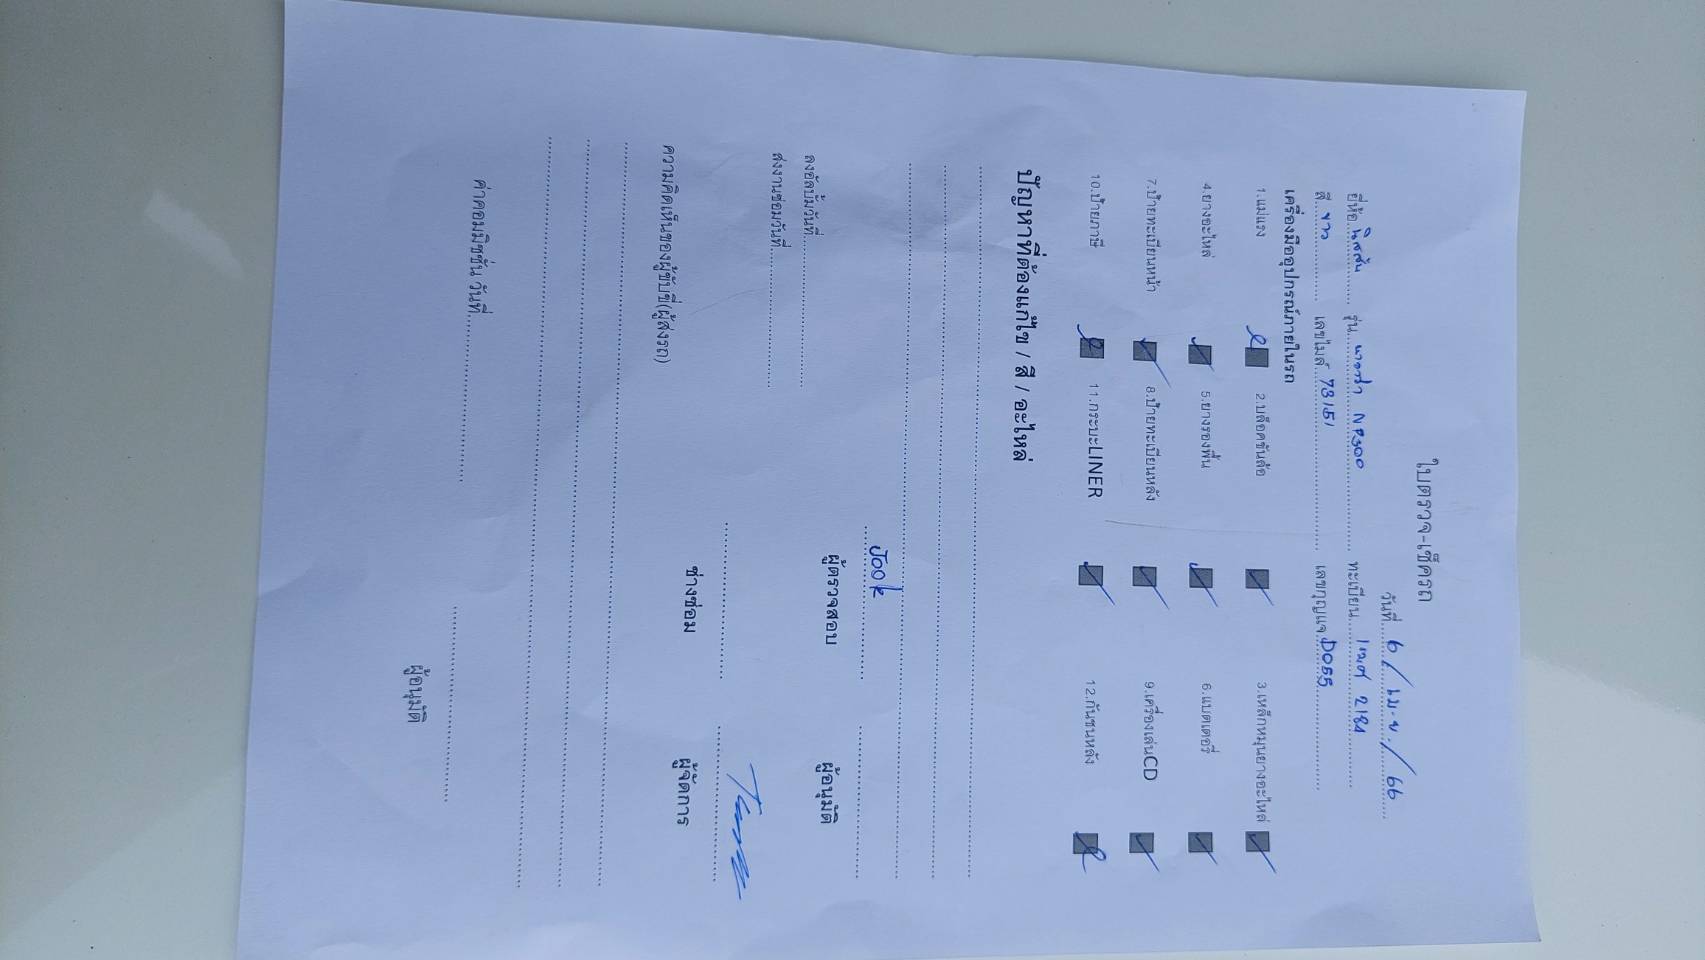 ใบตรวจ-เช็ครถ
วันที่ 6 / เม.ย. / 66
ยี่ห้อ นิสสัน รุ่น นาวาร่า NP300 ทะเบียน 2184
สี ขาว เลขไมล์ 73151 เลขกุญแจ D055
เครื่องมืออุปกรณ์ภายในรถ
1.แม่แรง 2.บล็อคขันล้อ 3.เหล็กหมุนยางอะไหล่
4.ยางอะไหล่ 5.ยางรองพื้น 6.แบตเตอรี่
7.ป้ายทะเบียนหน้า 8.ป้ายทะเบียนหลัง 9.เครื่องเล่นCD
10.ป้ายภาษี 11.กระบะLINER 12.กันชนหลัง
ปัญหาที่ต้องแก้ไข / สี / อะไหล่
Jook
ลงอัลบั้มวันที่ ผู้ตรวจสอบ ผู้อนุมัติ
ส่งงานซ่อมวันที่
ช่างซ่อม ผู้จัดการ
ความคิดเห็นของผู้ขับขี่(ผู้ส่งรถ)
ค่าคอมมิชชั่น วันที่
ผู้อนุมัติ